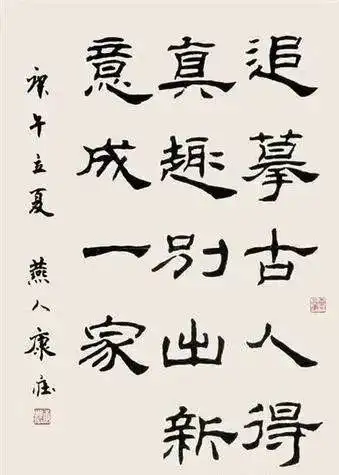 追摹古人得
真趣别出新
意成一家
庚午立夏 燕人康雍